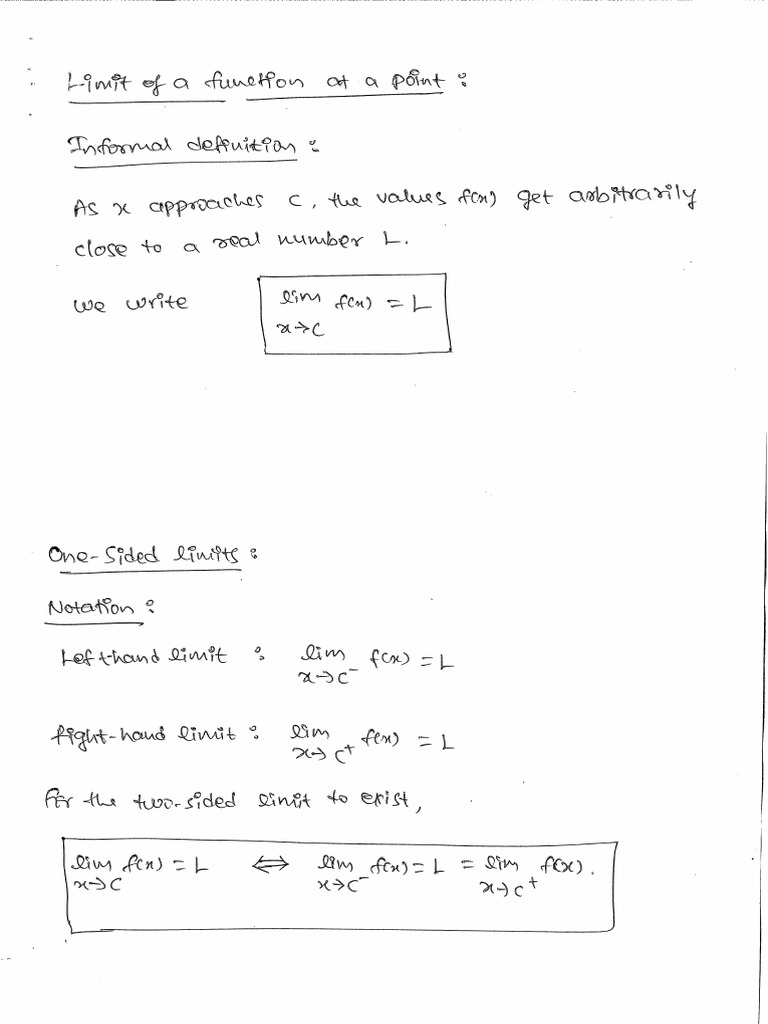 Limit of a function at a point :
Informal definition :
As x approaches c, the values f(x) get arbitrarily
close to a real number L.
We write lim f(x) = L
x→c
One-Sided limits :
Notation :
Left-hand limit : lim f(x) = L
x→c⁻
Right-hand limit : lim f(x) = L
x→c⁺
For the two-sided limit to exist,
lim f(x) = L ⇔ lim f(x) = L = lim f(x).
x→c x→c⁻ x→c⁺